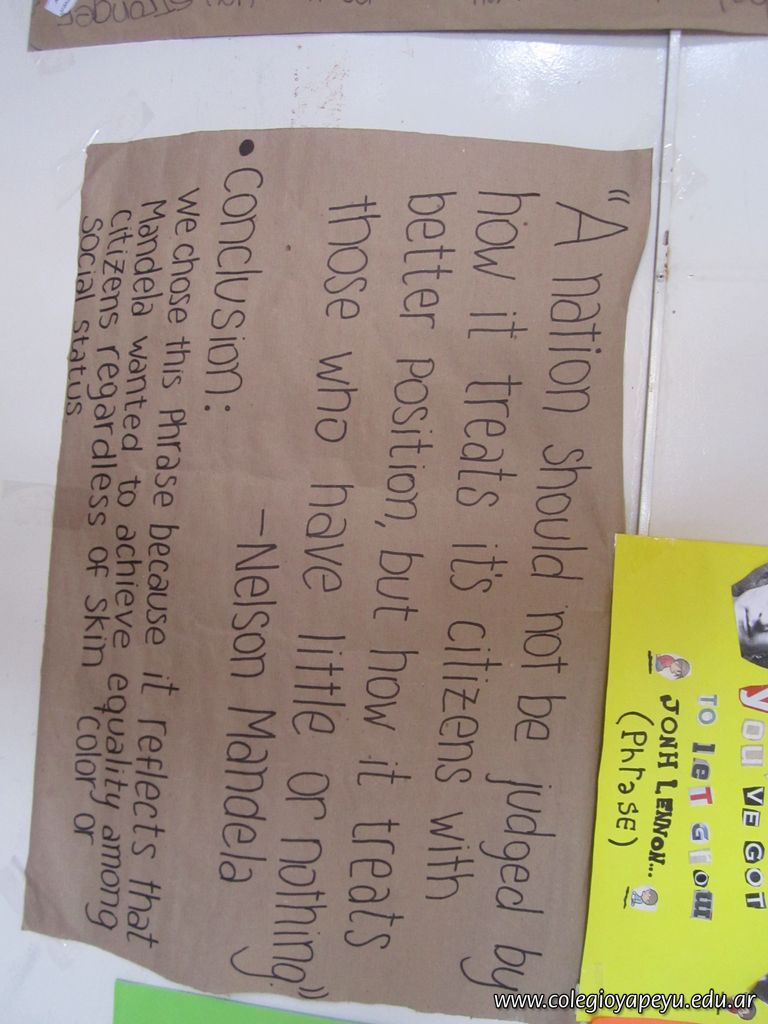 stronger
"A nation should not be judged by
how it treats it's citizens with
better position, but how it treats
those who have little or nothing"
-Nelson Mandela
• Conclusion:
we chose this phrase because it reflects that
Mandela wanted to achieve equality among
citizens regardless of skin color or
social status.
YOU'VE GOT
TO LET GROW
JONH LENNON...
(Phrase)
www.colegioyapeyu.edu.ar